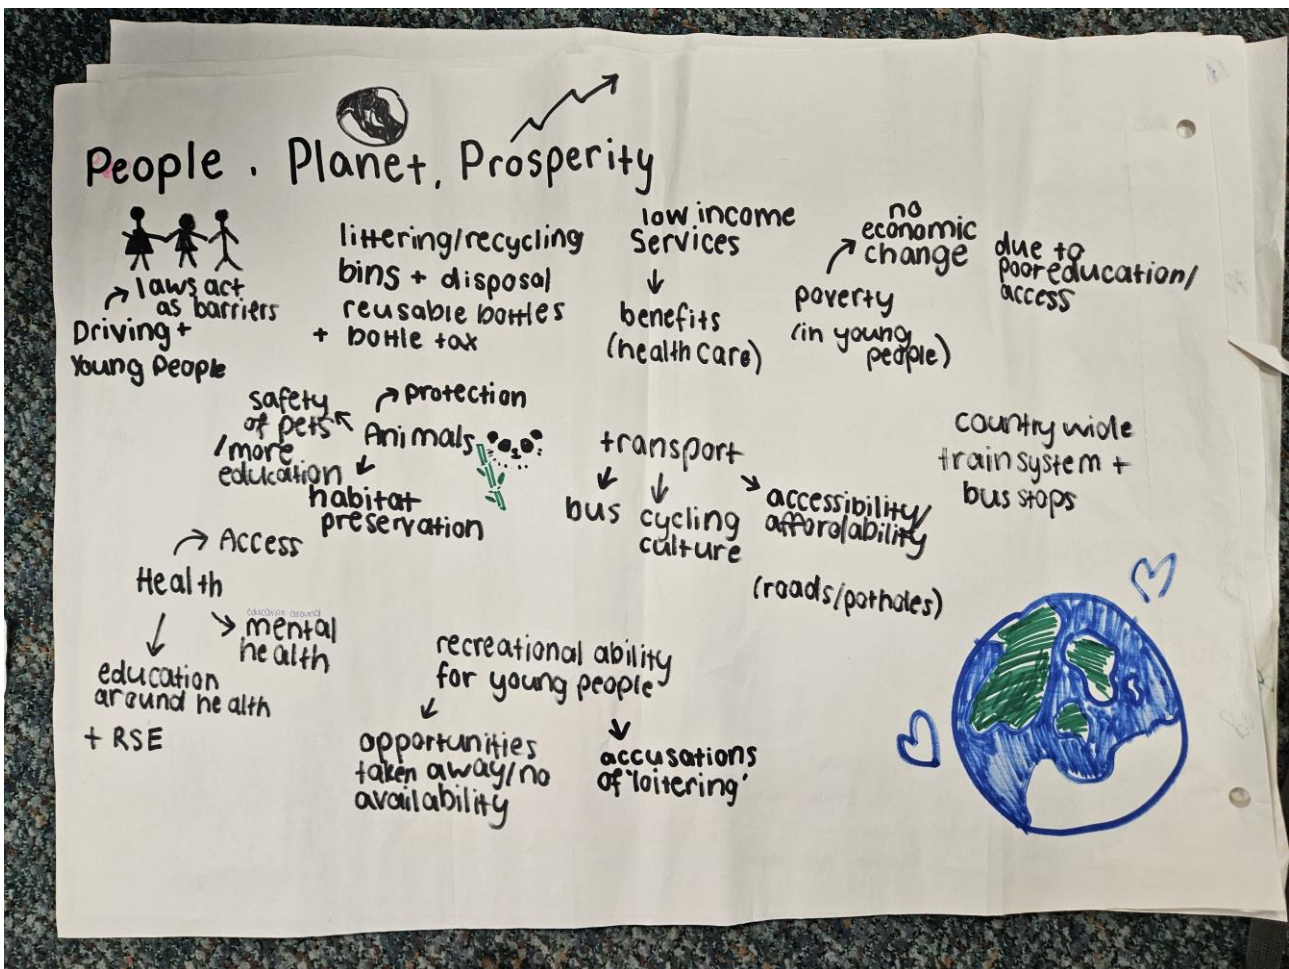 People . Planet, Prosperity
laws act
as barriers
Driving +
Young People
littering/recycling
bins + disposal
reusable bottles
+ bottle tax
low income
services
benefits
(healthcare)
no
economic
change
poverty
(in young
people)
due to
poor education/
access
protection
safety
of pets
/more
education
Animals
habitat
preservation
transport
bus
cycling
culture
accessibility/
affordability
(roads/potholes)
country wide
train system +
bus stops
Access
Health
education around
mental
health
education
around health
+ RSE
recreational ability
for young people
opportunities
taken away/no
availability
accusations
of 'loitering'